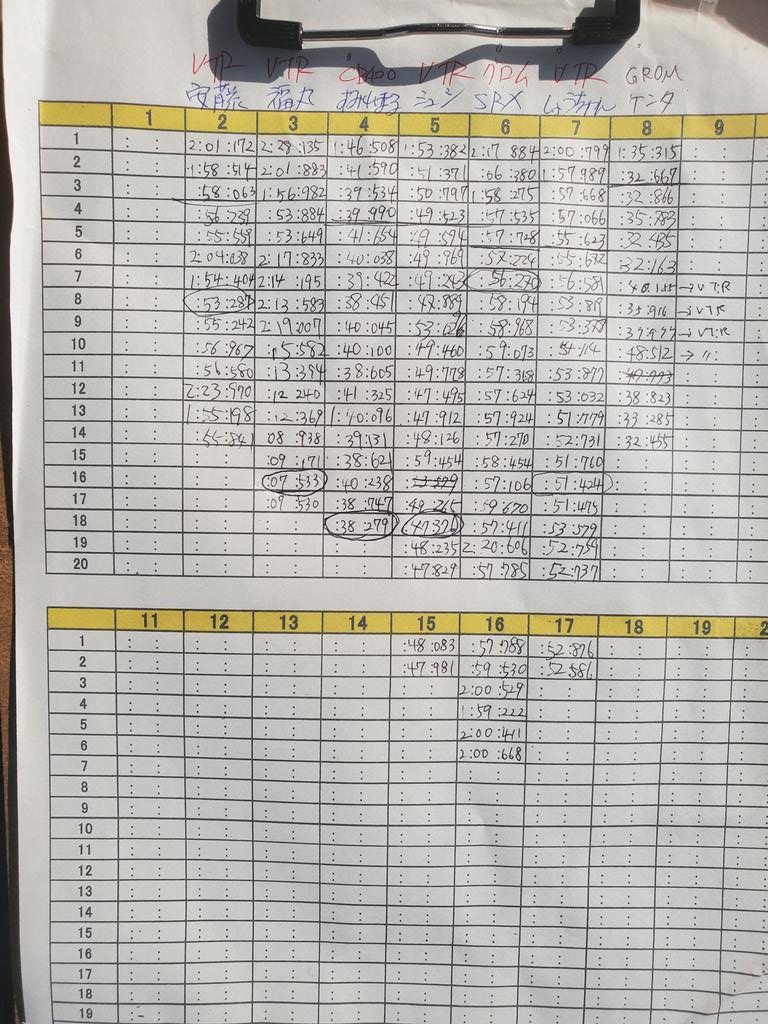 VTR VTR CB400 VTR グロム VTR GROM
安藤 福丸 ジュン SRX しょうちゃん ケンタ
1 2 3 4 5 6 7 8 9
1 : : 2:01:172 2:28:135 1:46:508 1:53:382 2:17 884 2:00:799 1:35:315 : :
2 : : 1:58:514 2:01:883 :41:590 :51:371 :06:380 1:57:989 :32:667 : :
3 : : :58:063 1:56:982 :39:534 :50:797 1:58:275 :57:668 :32:866 : :
4 : : :56:739 :53:884 :39:990 :49:523 :57:535 :57:066 :35:783 : :
5 : : :55:559 :53:649 :41:654 :49:594 :57:728 :55:623 :32:435 : :
6 : : 2:04:038 2:17:833 :40:038 :49:969 :57:224 :55:672 :32:163 : :
7 : : 1:54:404 2:14:195 :39:422 :49:243 :56:270 :56:581 →VTR
8 : : :53:287 2:13:583 :38:451 :47:889 :58:194 :53:819 :35:916 →VTR
9 : : :55:242 2:19:007 :40:045 :53:026 :58:968 :53:378 →VTR
10 : : :56:967 :15:582 :40:100 :49:460 :59:073 :54:114 :48:512 → 〃
11 : : :56:580 :13:394 :38:605 :49:778 :57:368 :53:877 : :
12 : : 2:23:970 :12 240 :41:325 :47:495 :57:624 :53:032 :38:823 : :
13 : : 1:55:198 :12:369 1:40:096 :47:912 :57:924 :51:779 :33:285 : :
14 : : :55:841 08:938 :39:131 :48:126 :57:270 :52:731 :32:455 : :
15 : : : : :09:171 :38:621 :59:454 :58:454 :51:760 : : : :
16 : : : : :07:533 :40:238 :57:106 :51:424 : : : :
17 : : : : :07:530 :38:747 :49:265 :59:670 :51:475 : : : :
18 : : : : : : :38 279 :47:321 :57:411 :53:579 : : : :
19 : : : : : : : : :48:235 2:20:606 :52:759 : : : :
20 : : : : : : : : :47:829 :57:785 :52:737 : : : :
11 12 13 14 15 16 17 18 19 2
1 : : : : : : : : :48:083 :57:788 :52:876 : : : :
2 : : : : : : : : :47:981 :59:530 :52:581 : : : :
3 : : : : : : : : : : 2:00:529 : : : : : :
4 : : : : : : : : : : 1:59:222 : : : : : :
5 : : : : : : : : : : 2:00:411 : : : : : :
6 : : : : : : : : : : 2:00:668 : : : : : :
7 : : : : : : : : : : : : : : : : : :
8 : : : : : : : : : : : : : : : : : :
9 : : : : : : : : : : : : : : : : : :
10 : : : : : : : : : : : : : : : : : :
11 : : : : : : : : : : : : : : : : : :
12 : : : : : : : : : : : : : : : : : :
13 : : : : : : : : : : : : : : : : : :
14 : : : : : : : : : : : : : : : : : :
15 : : : : : : : : : : : : : : : : : :
16 : : : : : : : : : : : : : : : : : :
17 : : : : : : : : : : : : : : : : : :
18 : : : : : : : : : : : : : : : : : :
19 : : : : : : : : : : : : : : : : : :